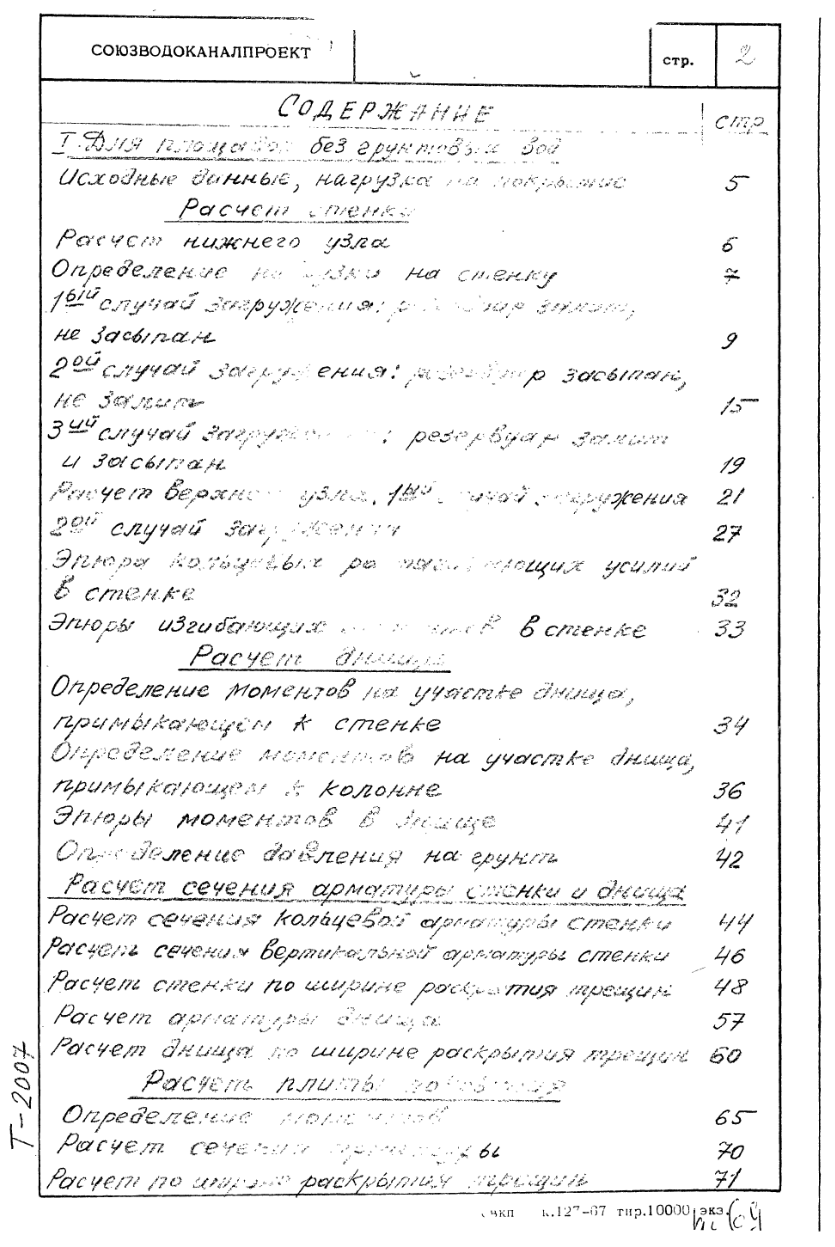 СОЮЗВОДОКАНАЛПРОЕКТ стр. 2
СОДЕРЖАНИЕ стр
I. Для площадок без грунтовых вод
Исходные данные, нагрузка на покрытие 5
Расчет стенки
Расчет нижнего узла 6
Определение нагрузки на стенку 7
1ый случай загружения: резервуар залит,
не засыпан 9
2ой случай загружения: резервуар засыпан,
не залит 15
3ий случай загружения: резервуар залит
и засыпан 19
Расчет верхнего узла. 1ый случай загружения 21
2ой случай загружения 27
Эпюра кольцевых растягивающих усилий
в стенке 32
Эпюры изгибающих моментов в стенке 33
Расчет днища
Определение моментов на участке днища,
примыкающем к стенке 34
Определение моментов на участке днища,
примыкающем к колонне 36
Эпюры моментов в днище 41
Определение давления на грунт 42
Расчет сечения арматуры стенки и днища
Расчет сечения кольцевой арматуры стенки 44
Расчет сечения вертикальной арматуры стенки 46
Расчет стенки по ширине раскрытия трещин 48
Расчет арматуры днища 57
Расчет днища по ширине раскрытия трещин 60
Расчет плиты покрытия
Определение моментов 65
Расчет сечения арматуры 70
Расчет по ширине раскрытия трещин 71
Т-2007
к.127-67 тир.10000 экз.